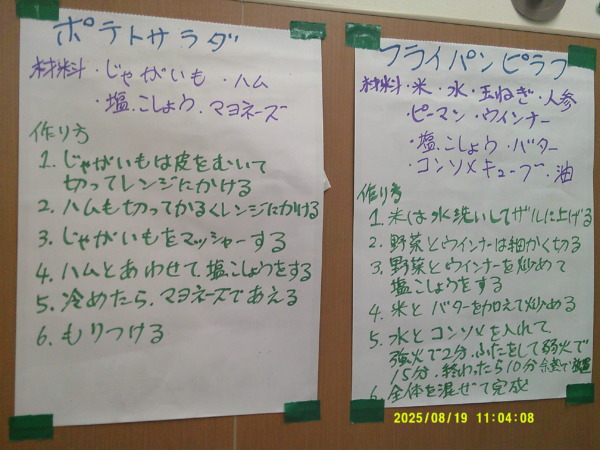 ポテトサラダ
材料・じゃがいも・ハム
・塩.こしょう.マヨネーズ
作り方
1.じゃがいもは皮をむいて
切ってレンジにかける
2.ハムも切ってかるくレンジにかける
3.じゃがいもをマッシャーする
4.ハムとあわせて.塩こしょうをする
5.冷めたら.マヨネーズであえる
6.もりつける
フライパンピラフ
材料・米・水・玉ねぎ・人参
・ピーマン・ウインナー
・塩.こしょう・バター
・コンソメキューブ・油
作り方
1.米は水洗いしてザルに上げる
2.野菜とウインナーは細かく切る
3.野菜とウインナーを炒めて
塩こしょうをする
4.米とバターを加えて炒める
5.水とコンソメを入れて
強火で2分.ふたをして弱火で
15分.終わったら10分余熱で放置
6.全体を混ぜて完成
2025/08/19 11:04:08